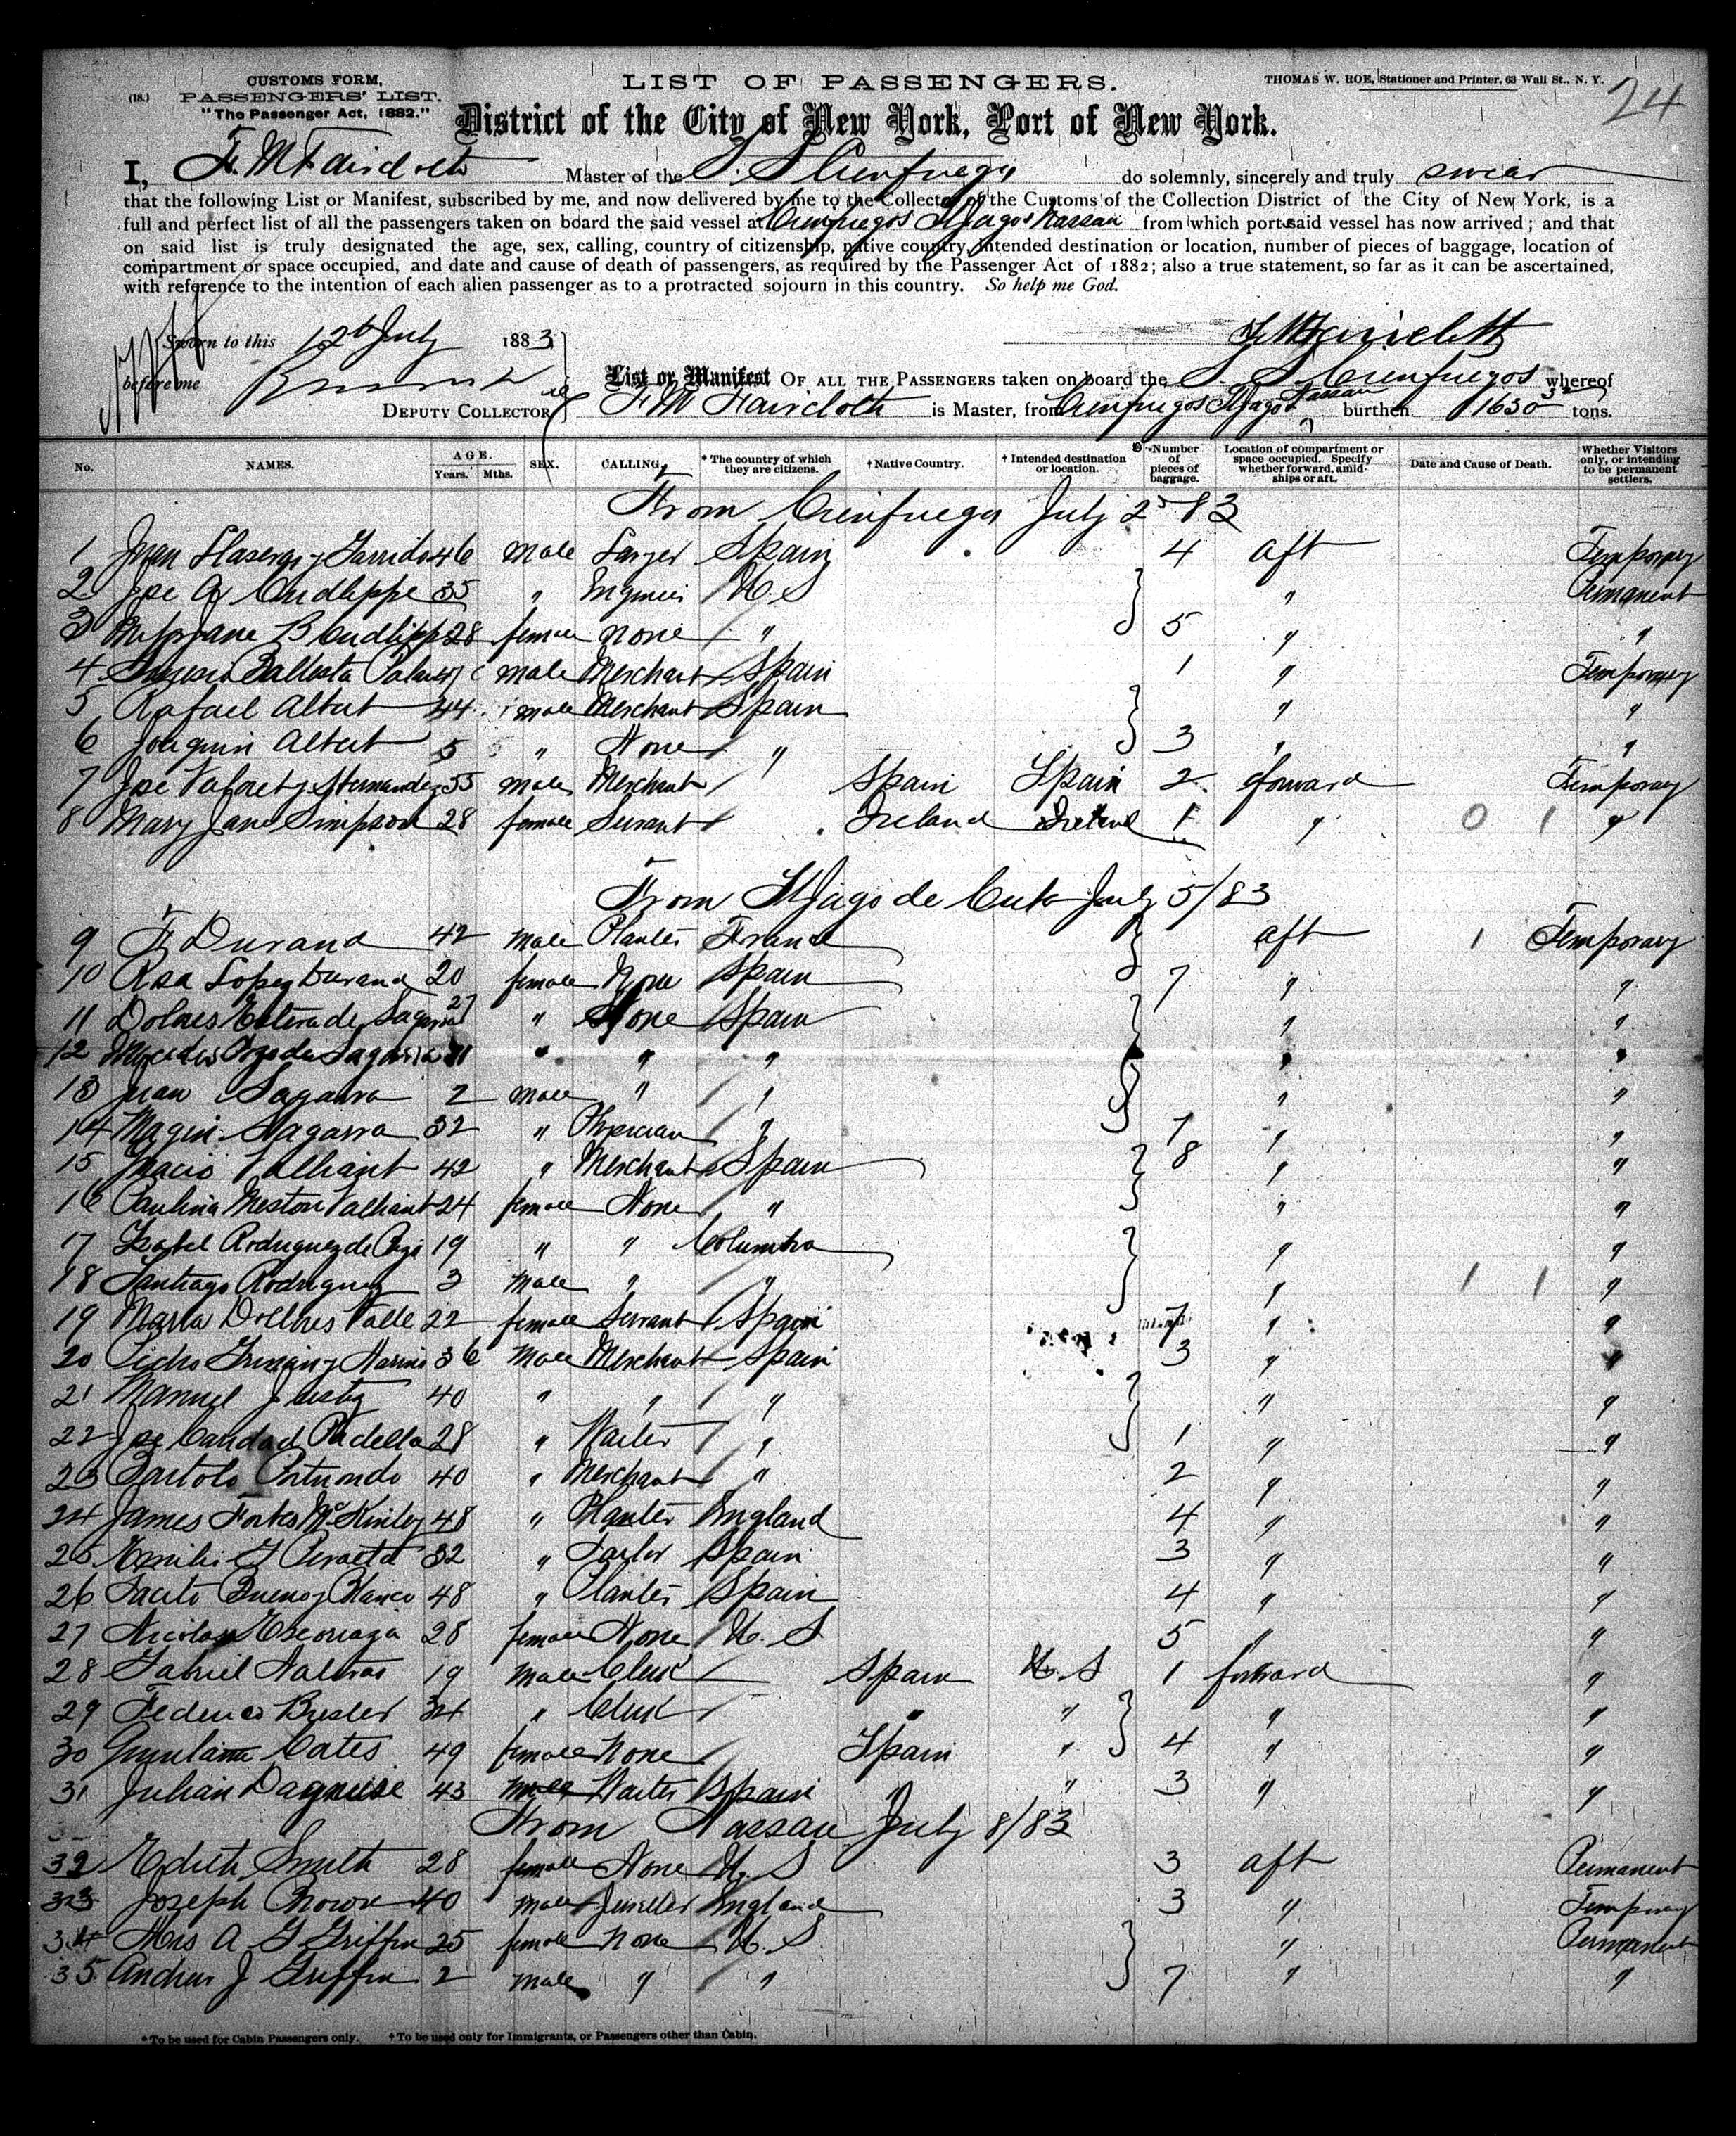 CUSTOMS FORM,
(18.) PASSENGERS' LIST.
"The Passenger Act, 1882."
LIST OF PASSENGERS.
THOMAS W. ROE, Stationer and Printer, 63 Wall St., N. Y.
24
District of the City of New York, Port of New York.
I, F. M Faircloth Master of the S. S Cienfuegos do solemnly, sincerely and truly swear
that the following List or Manifest, subscribed by me, and now delivered by me to the Collector of the Customs of the Collection District of the City of New York, is a
full and perfect list of all the passengers taken on board the said vessel at Cienfuegos St Jago & Nassau from which port said vessel has now arrived; and that
on said list is truly designated the age, sex, calling, country of citizenship, native country, intended destination or location, number of pieces of baggage, location of
compartment or space occupied, and date and cause of death of passengers, as required by the Passenger Act of 1882; also a true statement, so far as it can be ascertained,
with reference to the intention of each alien passenger as to a protracted sojourn in this country. So help me God.
Sworn to this 12th July 1883 F M Faircloth
before me List or Manifest OF ALL THE PASSENGERS taken on board the S. S Cienfuegos whereof
DEPUTY COLLECTOR F M Faircloth is Master, from Cienfuegos St Jago & Nassau burthen 1630 tons.
No. NAMES. AGE. Years. Mths. SEX. CALLING. * The country of which they are citizens. † Native Country. † Intended destination or location. Number of pieces of baggage. Location of compartment or space occupied. Specify whether forward, amidships or aft. Date and Cause of Death. Whether Visitors only, or intending to be permanent settlers.
From Cienfuegos July 2nd 83
1 Juan y Garrido 46 male Spain 4 aft Temporary
2 Jose A Cudlippe 35 " Engineer U. S } " Permanent
3 Mrs Jane B Cudlipp 28 female none " 5 " "
4 Ballesta male Merchant Spain 1 " Temporary
5 Rafael Albert 44 male Merchant Spain } " "
6 Joaquin Albert 5 " None " 3 " "
7 Jose y Hernandez 55 male Merchant Spain Spain 2 forward Temporary
8 Mary Jane Simpson 28 female Servant Ireland Ireland 1 " 0 1 "
From St Jago de Cuba July 5/83
9 F Durand 42 Male Planter France } aft 1 Temporary
10 Rosa Lopez Durand 20 female None Spain 7 " "
11 Dolores de Sagarra 27 " None Spain } " "
12 Mercedes de Sagarra " " " " "
13 Juan Sagarra 2 male " " " "
14 Magin Sagarra 32 " Physician " 7 " "
15 Valliant 42 " Merchant Spain } 8 " "
16 Paulina Meston Valliant 24 female None " " "
17 Isabel Rodriguez de 19 " " Columbia } " "
18 Santiago Rodriguez 3 Male " " " 1 1 "
19 Maria Dolores Valle 22 female Servant Spain 7 " "
20 36 Male Merchant Spain 3 " "
21 Manuel Justiz 40 " " " } " "
22 Jose Padella 28 " Waiter " 1 " "
23 Bartolo Portuondo 40 " Merchant " 2 " "
24 James Forbes McKinley 48 " Planter England 4 " "
25 Emilio 32 " Spain 3 " "
26 Bueno y Blanco 48 " Planter Spain 4 " "
27 Nicolasa 28 female None U. S 5 " "
28 Gabriel 19 Male Clerk Spain U. S 1 forward "
29 Federico 34 " Clerk " " } " "
30 Cates 49 female None Spain " 4 " "
31 Julian 43 Male Waiter Spain " " 3 " "
From Nassau July 8/83
32 Edith Smith 28 female None U. S 3 aft Permanent
33 Joseph 40 Male Jeweller England 3 " Temporary
34 Mrs A G Griffin 25 female None U. S } " Permanent
35 Andrew J Griffin 2 male " " 7 " "
* To be used for Cabin Passengers only. † To be used only for Immigrants, or Passengers other than Cabin.